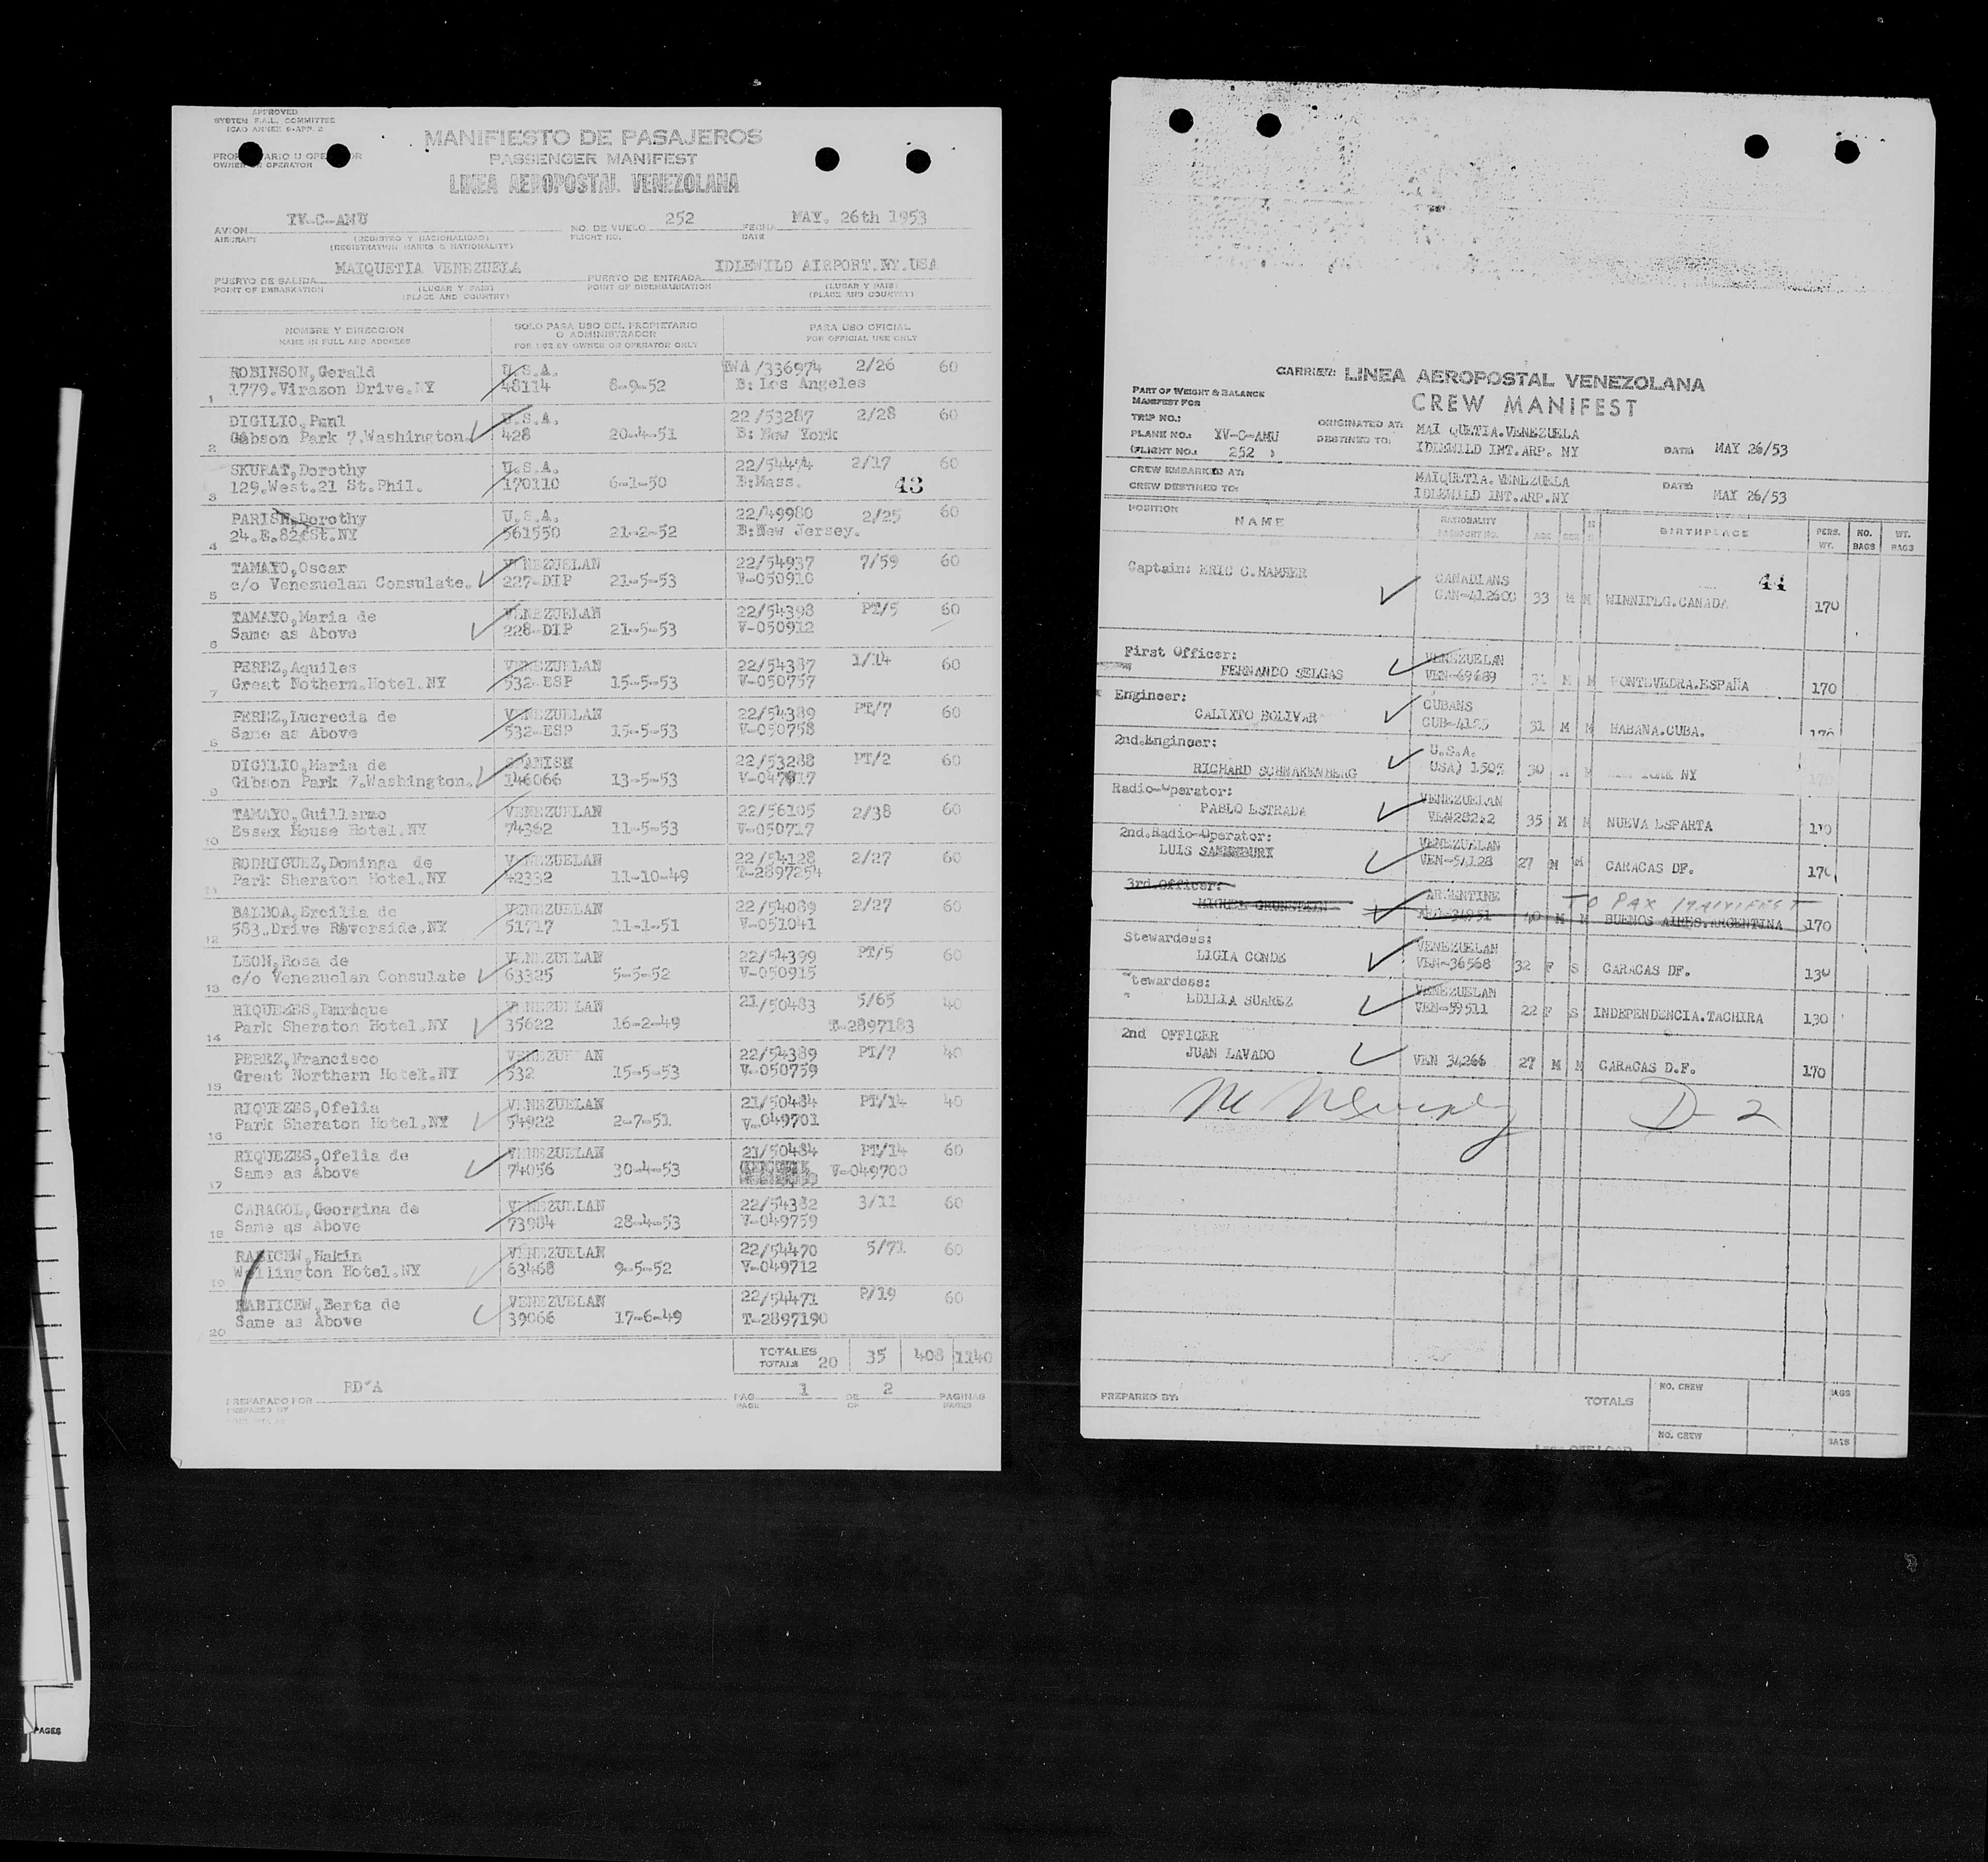 APPROVED
SYSTEM F.A.L. COMMITTEE
ICAO ANNEX 9-APP. 2
MANIFIESTO DE PASAJEROS
PASSENGER MANIFEST
LINEA AEROPOSTAL VENEZOLANA
AVION YV-C-AMU NO. DE VUELO 252 FECHA MAY. 26th 1953
AIRCRAFT (REGISTRO Y NACIONALIDAD) FLIGHT NO. DATE
(REGISTRATION MARKS & NATIONALITY)
PUERTO DE SALIDA MAIQUETIA VENEZUELA PUERTO DE ENTRADA IDLEWILD AIRPORT.NY.USA
POINT OF EMBARKATION (LUGAR Y PAIS) POINT OF DISEMBARKATION (LUGAR Y PAIS)
(PLACE AND COUNTRY) (PLACE AND COUNTRY)
NOMBRE Y DIRECCION SOLO PARA USO DEL PROPIETARIO PARA USO OFICIAL
O ADMINISTRADOR
NAME IN FULL AND ADDRESS FOR USE BY OWNER OR OPERATOR ONLY FOR OFFICIAL USE ONLY
ROBINSON,Gerald U.S.A. TWA/336974 2/26 60
1 1779.Virazon Drive.NY 48114 8-9-52 B: Los Angeles
DIGILIO,Paul U.S.A. 22/53287 2/28 60
2 Gibson Park 7.Washington. 428 20-4-51 B: New York
SKURAT,Dorothy U.S.A. 22/54474 2/17 60
3 129.West.21 St.Phil. 170110 6-1-50 B:Mass. 43
PARISH,Dorothy U.S.A. 22/49980 2/25 60
4 24.E.82 St.NY 561550 21-2-52 B:New Jersey.
TAMAYO,Oscar VENEZUELAN 22/54937 7/59 60
5 c/o Venezuelan Consulate. 227-DIP 21-5-53 V-050910
TAMAYO,Maria de VENEZUELAN 22/54398 PT/5 60
6 Same as Above 228-DIP 21-5-53 V-050912
PEREZ,Aquiles VENEZUELAN 22/54387 1/14 60
7 Great Nothern.Hotel.NY 532-ESP 15-5-53 V-050757
PEREZ,Lucrecia de VENEZUELAN 22/54389 PT/7 60
8 Same as Above 532-ESP 15-5-53 V-050758
DIGILIO,Maria de SPANISH 22/53288 PT/2 60
9 Gibson Park 7.Washington. 146066 13-5-53 V-047817
TAMAYO,Guillermo VENEZUELAN 22/56105 2/38 60
10 Essex House Hotel.NY 74362 11-5-53 V-050717
RODRIGUEZ,Dominga de VENEZUELAN 22/54128 2/27 60
11 Park Sheraton Hotel.NY 42332 11-10-49 T-2897254
BALBOA,Ercilia de VENEZUELAN 22/54089 2/27 60
12 583.Drive Riverside.NY 51717 11-1-51 V-051041
LEON,Rosa de VENEZUELAN 22/54399 PT/5 60
13 c/o Venezuelan Consulate 63325 5-5-52 V-050915
RIQUEZES,Enrique VENEZUELAN 21/50483 5/65 40
14 Park Sheraton Hotel.NY 35622 16-2-49 T-2897183
PEREZ,Francisco VENEZUELAN 22/54389 PT/7 40
15 Great Northern Hotel.NY 532 15-5-53 V-050759
RIQUEZES,Ofelia VENEZUELAN 21/50484 PT/14 40
16 Park Sheraton Hotel.NY 54922 2-7-51 V-049701
RIQUEZES,Ofelia de VENEZUELAN 21/50484 PT/14 60
17 Same as Above 74056 30-4-53 V-049700
CARAGOL,Georgina de VENEZUELAN 22/54382 3/11 60
18 Same as Above 73984 28-4-53 V-049759
RABICEW,Hakin VENEZUELAN 22/54470 5/71 60
19 Wellington Hotel.NY 63468 9-5-52 V-049712
RABIICEW,Berta de VENEZUELAN 22/54471 P/19 60
20 Same as Above 39066 17-6-49 T-2897190
TOTALES
TOTALS 20 35 408 1140
PREPARADO POR RD'A PAG 1 DE 2 PAGINAS
PREPARED BY PAGE OF PAGES
CARRIER: LINEA AEROPOSTAL VENEZOLANA
CREW MANIFEST
PART OF WEIGHT & BALANCE
MANIFEST FOR
TRIP NO.: ORIGINATED AT: MAI QUETIA.VENEZUELA
PLANE NO.: YV-C-AMU DESTINED TO: IDLEWILD INT.ARP. NY DATE: MAY 26/53
(FLIGHT NO.: 252 )
CREW EMBARKED AT: MAIQUETIA.VENEZUELA
CREW DESTINED TO: IDLEWILD INT.ARP.NY DATE: MAY 26/53
POSITION NAME NATIONALITY PASSPORT NO. AGE SEX BIRTHPLACE PERS. WT. NO. BAGS WT. BAGS
44
Captain: ERIC C.HAMBER CANADIANS
CAN-412600 33 M M WINNIPEG.CANADA 170
First Officer: VENEZUELAN
FERNANDO SELGAS VEN-69689 31 M M PONTEVEDRA.ESPAÑA 170
Engineer: CUBANS
CALIXTO BOLIVAR CUB-4195 31 M M HABANA.CUBA. 170
2nd.Engineer: U.S.A.
RICHARD SCHNAKENBERG USA) 1505 30 M M NEW YORK NY 170
Radio-Operator: VENEZUELAN
PABLO ESTRADA VEN28212 35 M M NUEVA ESPARTA 170
2nd.Radio-Operator: VENEZUELAN
LUIS SAMENBURY VEN-54128 27 M M CARACAS DF. 170
3rd.Officer: ARGENTINE TO PAX MANIFEST
MIGUEL GRUNSTEIN ARG-34951 40 M M BUENOS AIRES.ARGENTINA 170
Stewardess: VENEZUELAN
LIGIA CONDE VEN-36568 32 F S CARACAS DF. 130
Stewardess: VENEZUELAN
EDILIA SUAREZ VEN-59511 22 F S INDEPENDENCIA.TACHIRA 130
2nd OFFICER
JUAN LAVADO VEN 34266 27 M M CARACAS D.F. 170
D-2
PREPARED BY: TOTALS NO. CREW BAGS
NO. CREW BAGS
PAGES